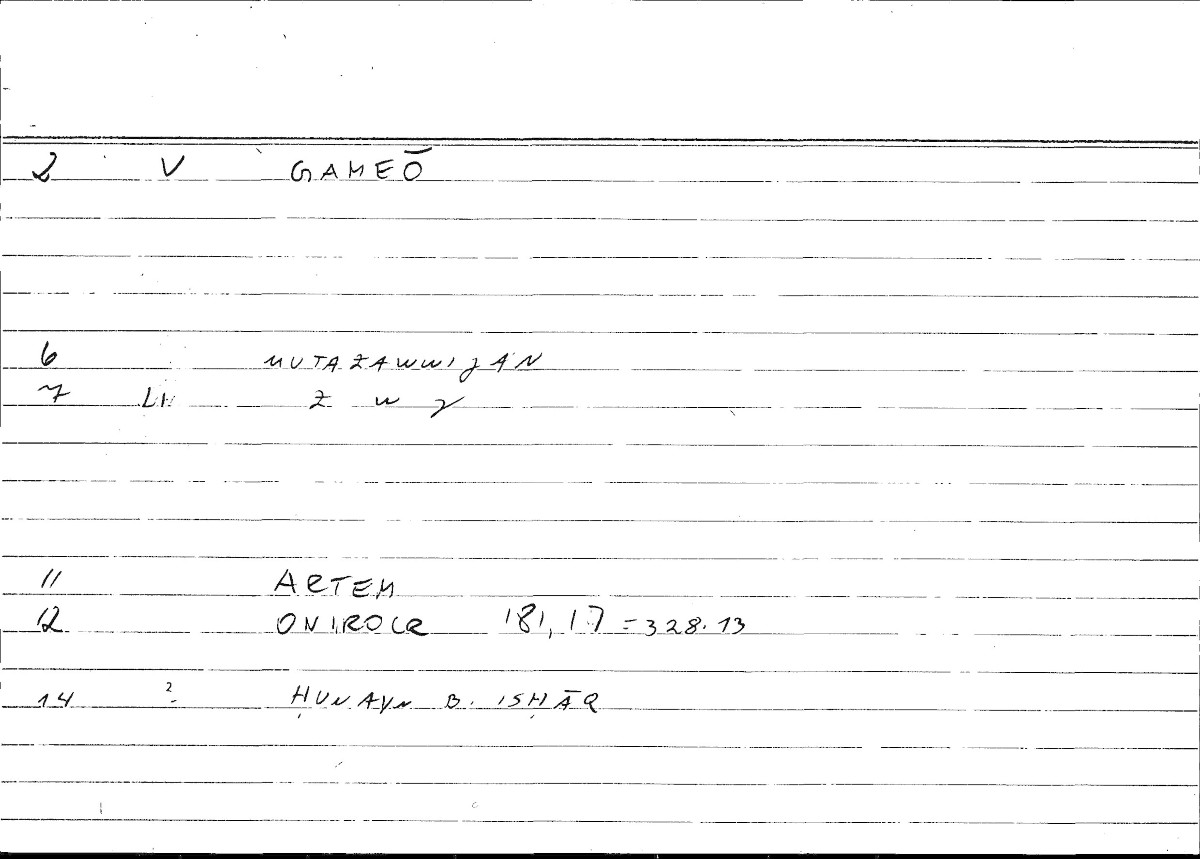 2 V GAMEŌ
6 MUTAZAWWIJAN
7 Z W J
11 ARTEM
12 ONIROCR 181,17 = 328.13
14 ḤUNAYN B. ISḤĀQ